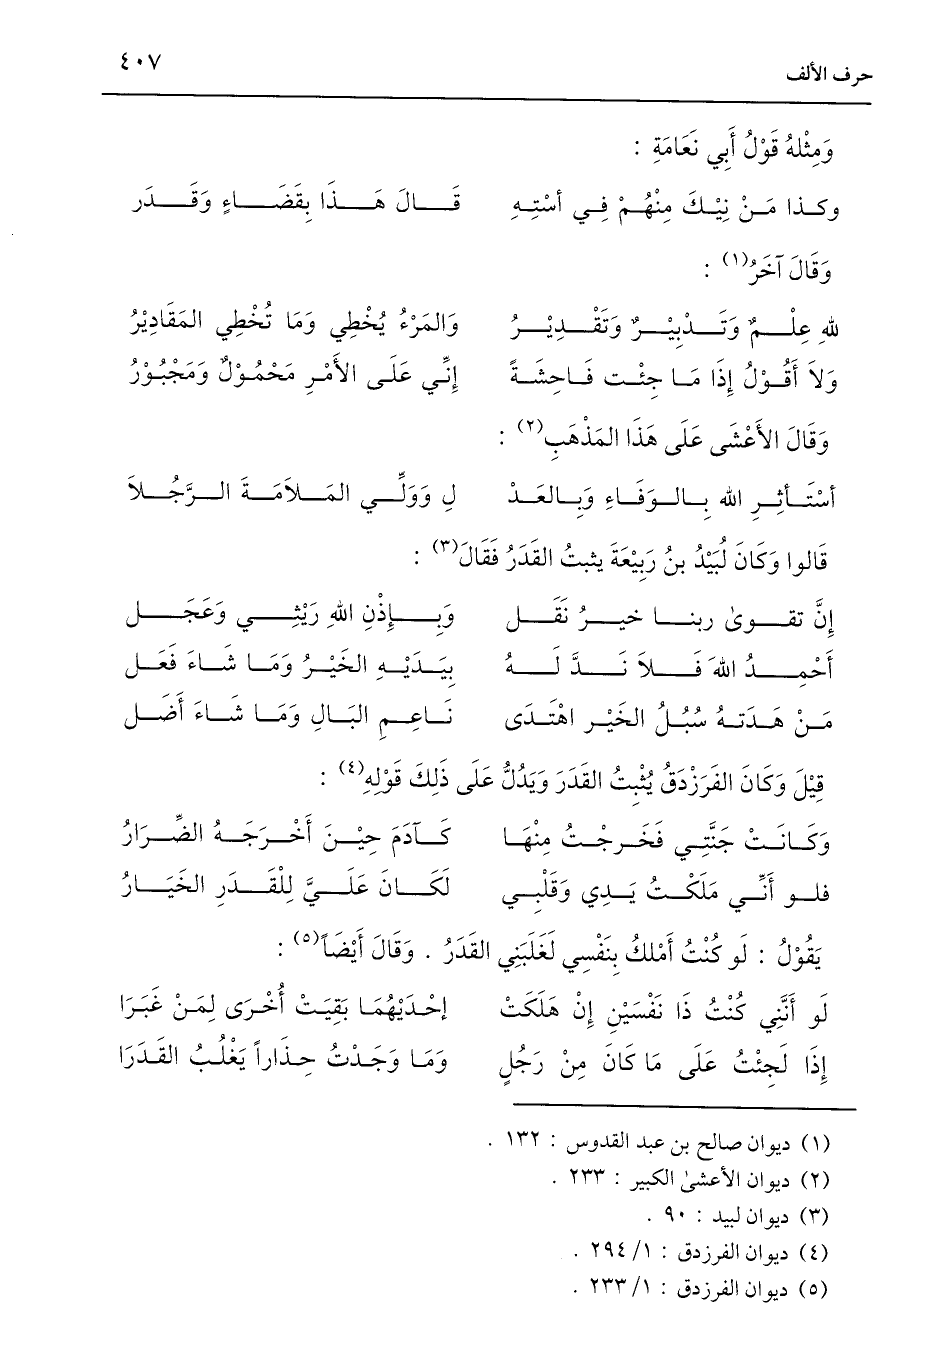 ٤٠٧
حرف الألف
وَمِثْلهُ قَوْلُ أَبِي نَعَامَةِ :
وكـذا مَـنْ نِيْـكَ مِنْهُـمْ فِـي أسْتِـهِ قَـالَ هَـذَا بِقَضَـاءٍ وَقَـدَر
وَقَالَ آخَرُ(١) :
للهِ عِلْـمٌ وَتَـدْبِيْـرٌ وَتَقْـدِيْـرُ وَالمَرْءُ يُخْطِي وَمَا تُخْطِي المَقَادِيْرُ
وَلاَ أَقُوْلُ إِذَا مَـا جِئْت فَـاحِشَـةً إِنِّي عَلَـى الأَمْـرِ مَحْمُوْلٌ وَمَجْبُوْرُ
وَقَالَ الأَعْشَى عَلَى هَذَا المَذْهَبِ(٢) :
أسْتَـأثِـرِ الله بِـالـوَفَـاءِ وَبِـالعَـدْ لِ وَوَلِّـي المَـلاَمَـةَ الـرَّجُـلاَ
قَالوا وَكَانَ لُبَيْدُ بنُ رَبِيْعَةَ يثبتُ القَدَرُ فَقَالَ(٣) :
إِنَّ تقـوىٰ ربنـا خيـرُ نَفَـل وَبِـإِذْنِ اللهِ رَيْثِـي وَعَجَـل
أَحْمِـدُ اللهَ فَـلاَ نَـدَّ لَـهُ بِيَـدَيْـهِ الخَيْـرُ وَمَـا شَـاءَ فَعَـل
مَـنْ هَـدَتـهُ سُبُـلُ الخَيْـرِ اهْتَـدَى نَـاعِـمِ البَـالِ وَمَـا شَـاءَ أَضَـل
قِيْلَ وَكَانَ الفَرَزْدَقُ يُثْبِتُ القَدَرَ وَيَدُلُّ عَلَى ذَلِكَ قَوْلِهِ(٤) :
وَكَـانَـتْ جَنَّتِـي فَخَـرجْـتُ مِنْهَـا كَـآدَمَ حِيْـنَ أَخْـرَجَـهُ الضِّـرَارُ
فلـو أَنِّـي مَلَكْـتُ يَـدِي وَقَلْبِـي لَكَـانَ عَلَـيَّ لِلْقَـدَرِ الخَيَـارُ
يَقُوْلُ : لَو كُنْتُ أَمْلكُ بِنَفْسِي لَغَلَبَنِي القَدَرُ . وَقَالَ أَيْضَاً(٥) :
لَو أَنَّنِي كُنْتُ ذَا نَفْسَيْنِ إِنْ هَلَكَتْ إِحْدَيْهُمَا بَقِيَتْ أُخْرَى لِمَنْ غَبَرَا
إِذَا لَجِئْتُ عَلَى مَا كَانَ مِنْ رَجُلٍ وَمَا وَجَدْتُ حِذَاراً يَغْلُبُ القَدَرَا
(١) ديوان صالح بن عبد القدوس : ١٣٢ .
(٢) ديوان الأعشىٰ الكبير : ٢٣٣ .
(٣) ديوان لبيد : ٩٠ .
(٤) ديوان الفرزدق : ١/ ٢٩٤ .
(٥) ديوان الفرزدق : ١/ ٢٣٣ .